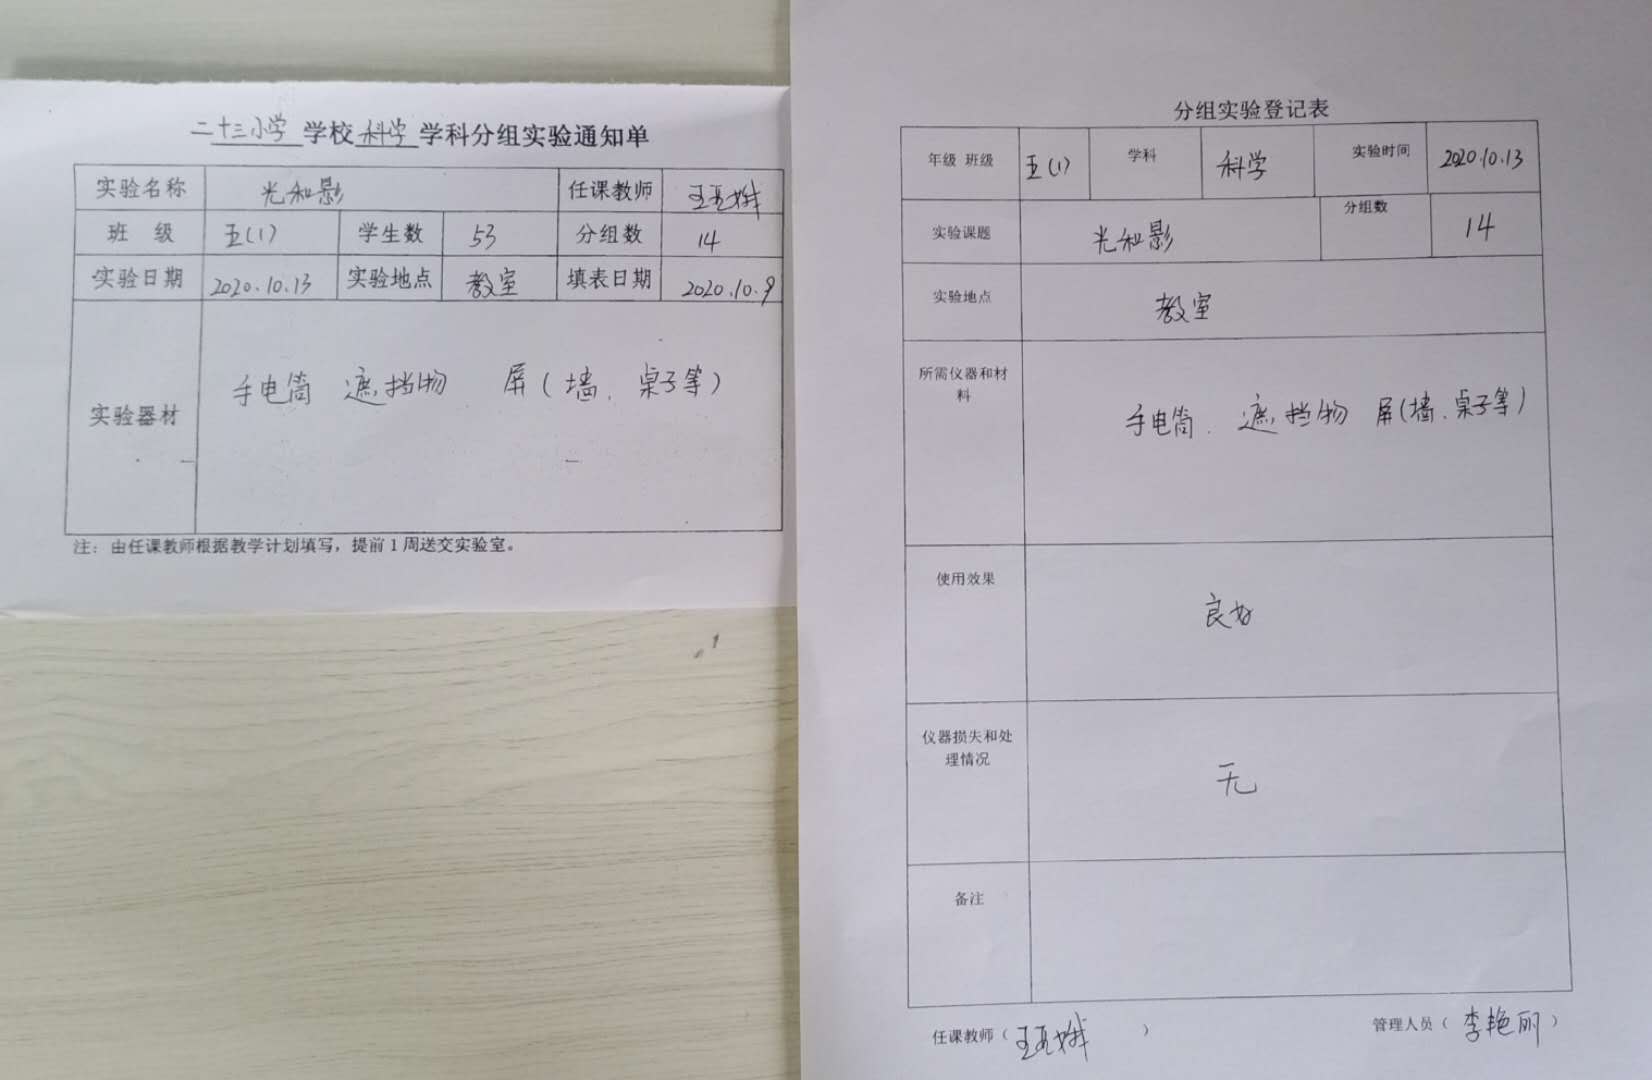 二十三小学 学校 科学 学科分组实验通知单
实验名称 光和影 任课教师 王亚娥
班 级 五(1) 学生数 53 分组数 14
实验日期 2020.10.13 实验地点 教室 填表日期 2020.10.9
实验器材 手电筒 遮挡物 屏(墙、桌子等)
注：由任课教师根据教学计划填写，提前1周送交实验室。
分组实验登记表
年级 班级 五(1) 学科 科学 实验时间 2020.10.13
实验课题 光和影 分组数 14
实验地点 教室
所需仪器和材
料
手电筒、遮挡物 屏(墙、桌子等)
使用效果 良好
仪器损失和处
理情况
无
备注
任课教师（王亚娥） 管理人员（李艳丽）